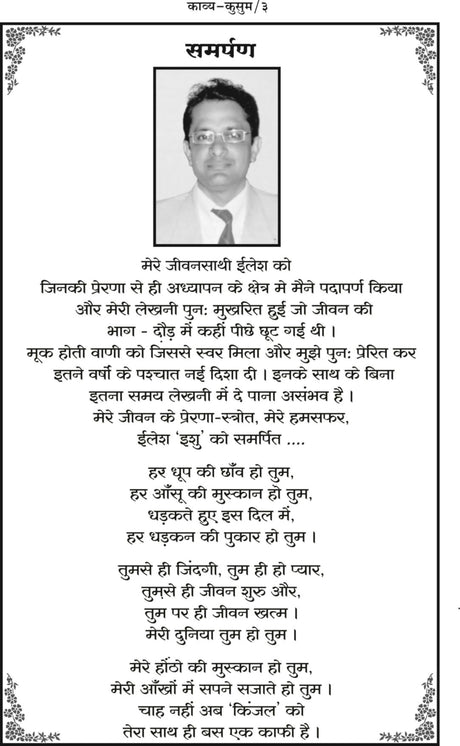 काव्य-कुसुम/३
समर्पण
मेरे जीवनसाथी ईलेश को
जिनकी प्रेरणा से ही अध्यापन के क्षेत्र मे मैने पदापर्ण किया
और मेरी लेखनी पुन: मुखरित हुई जो जीवन की
भाग - दौड़ में कहीं पीछे छूट गई थी ।
मूक होती वाणी को जिससे स्वर मिला और मुझे पुन: प्रेरित कर
इतने वर्षो के पश्चात नई दिशा दी । इनके साथ के बिना
इतना समय लेखनी में दे पाना असंभव है ।
मेरे जीवन के प्रेरणा-स्त्रोत, मेरे हमसफर,
ईलेश ‘इशु’ को समर्पित ....
हर धूप की छाँव हो तुम,
हर आँसू की मुस्कान हो तुम,
धड़कते हुए इस दिल में,
हर धड़कन की पुकार हो तुम ।
तुमसे ही जिंदगी, तुम ही हो प्यार,
तुमसे ही जीवन शुरु और,
तुम पर ही जीवन खत्म ।
मेरी दुनिया तुम हो तुम ।
मेरे होंठो की मुस्कान हो तुम,
मेरी आँखों में सपने सजाते हो तुम ।
चाह नहीं अब ‘किंजल’ को
तेरा साथ ही बस एक काफी है ।